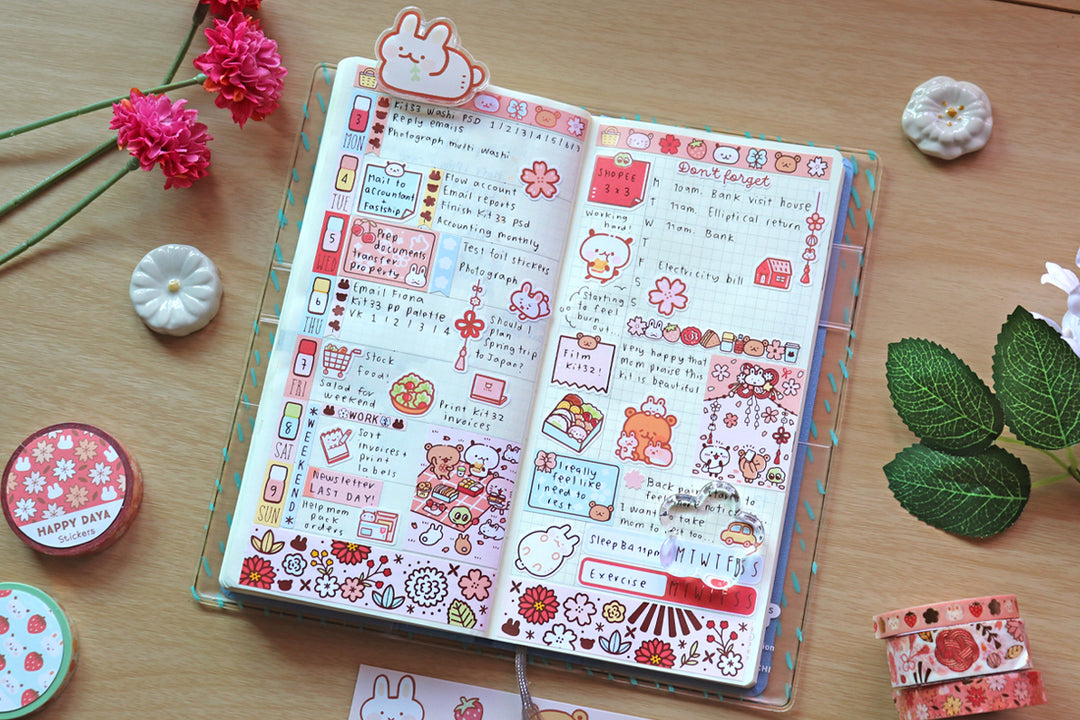 3
MON
Kit33 Washi PSD 1/2/3/4/5/6/7
Reply emails
Photograph multi washi
4
TUE
Mail to
accountant
+
Fastship
Flow account
Email reports
Finish Kit 33 psd
Accounting monthly
5
WED
Prep
documents
transfer
property
Test foil stickers
Photograph
6
THU
Email Fiona
Kit33 PP palette
VK 1 2 1 3 1 4
Should I
plan
Spring trip
to Japan?
7
FRI
Stock
food!
Salad for
weekend
Print Kit32
invoices
8
SAT
*WEEKEND*
WORK
Sort
invoices +
Print
labels
9
SUN
Newsletter
LAST DAY!
Help mom
pack
orders
Don't forget
SHOPEE
3 x 3
M 10am. Bank visit house
T 11am. Elliptical return
W 11am. Bank
T
F Electricity bill
S
S
Working
hard!
Starting
to feel
burn
out...
Film
Kit32!
Very happy that
mom praise this
kit is beautiful
I really
feel like
I need to
rest
Back pain start to
I want to take
mom to
too...
Sleep B4 11pm
M T W T F S S
Exercise
M T W T F S S
HAPPY DAYA
Stickers